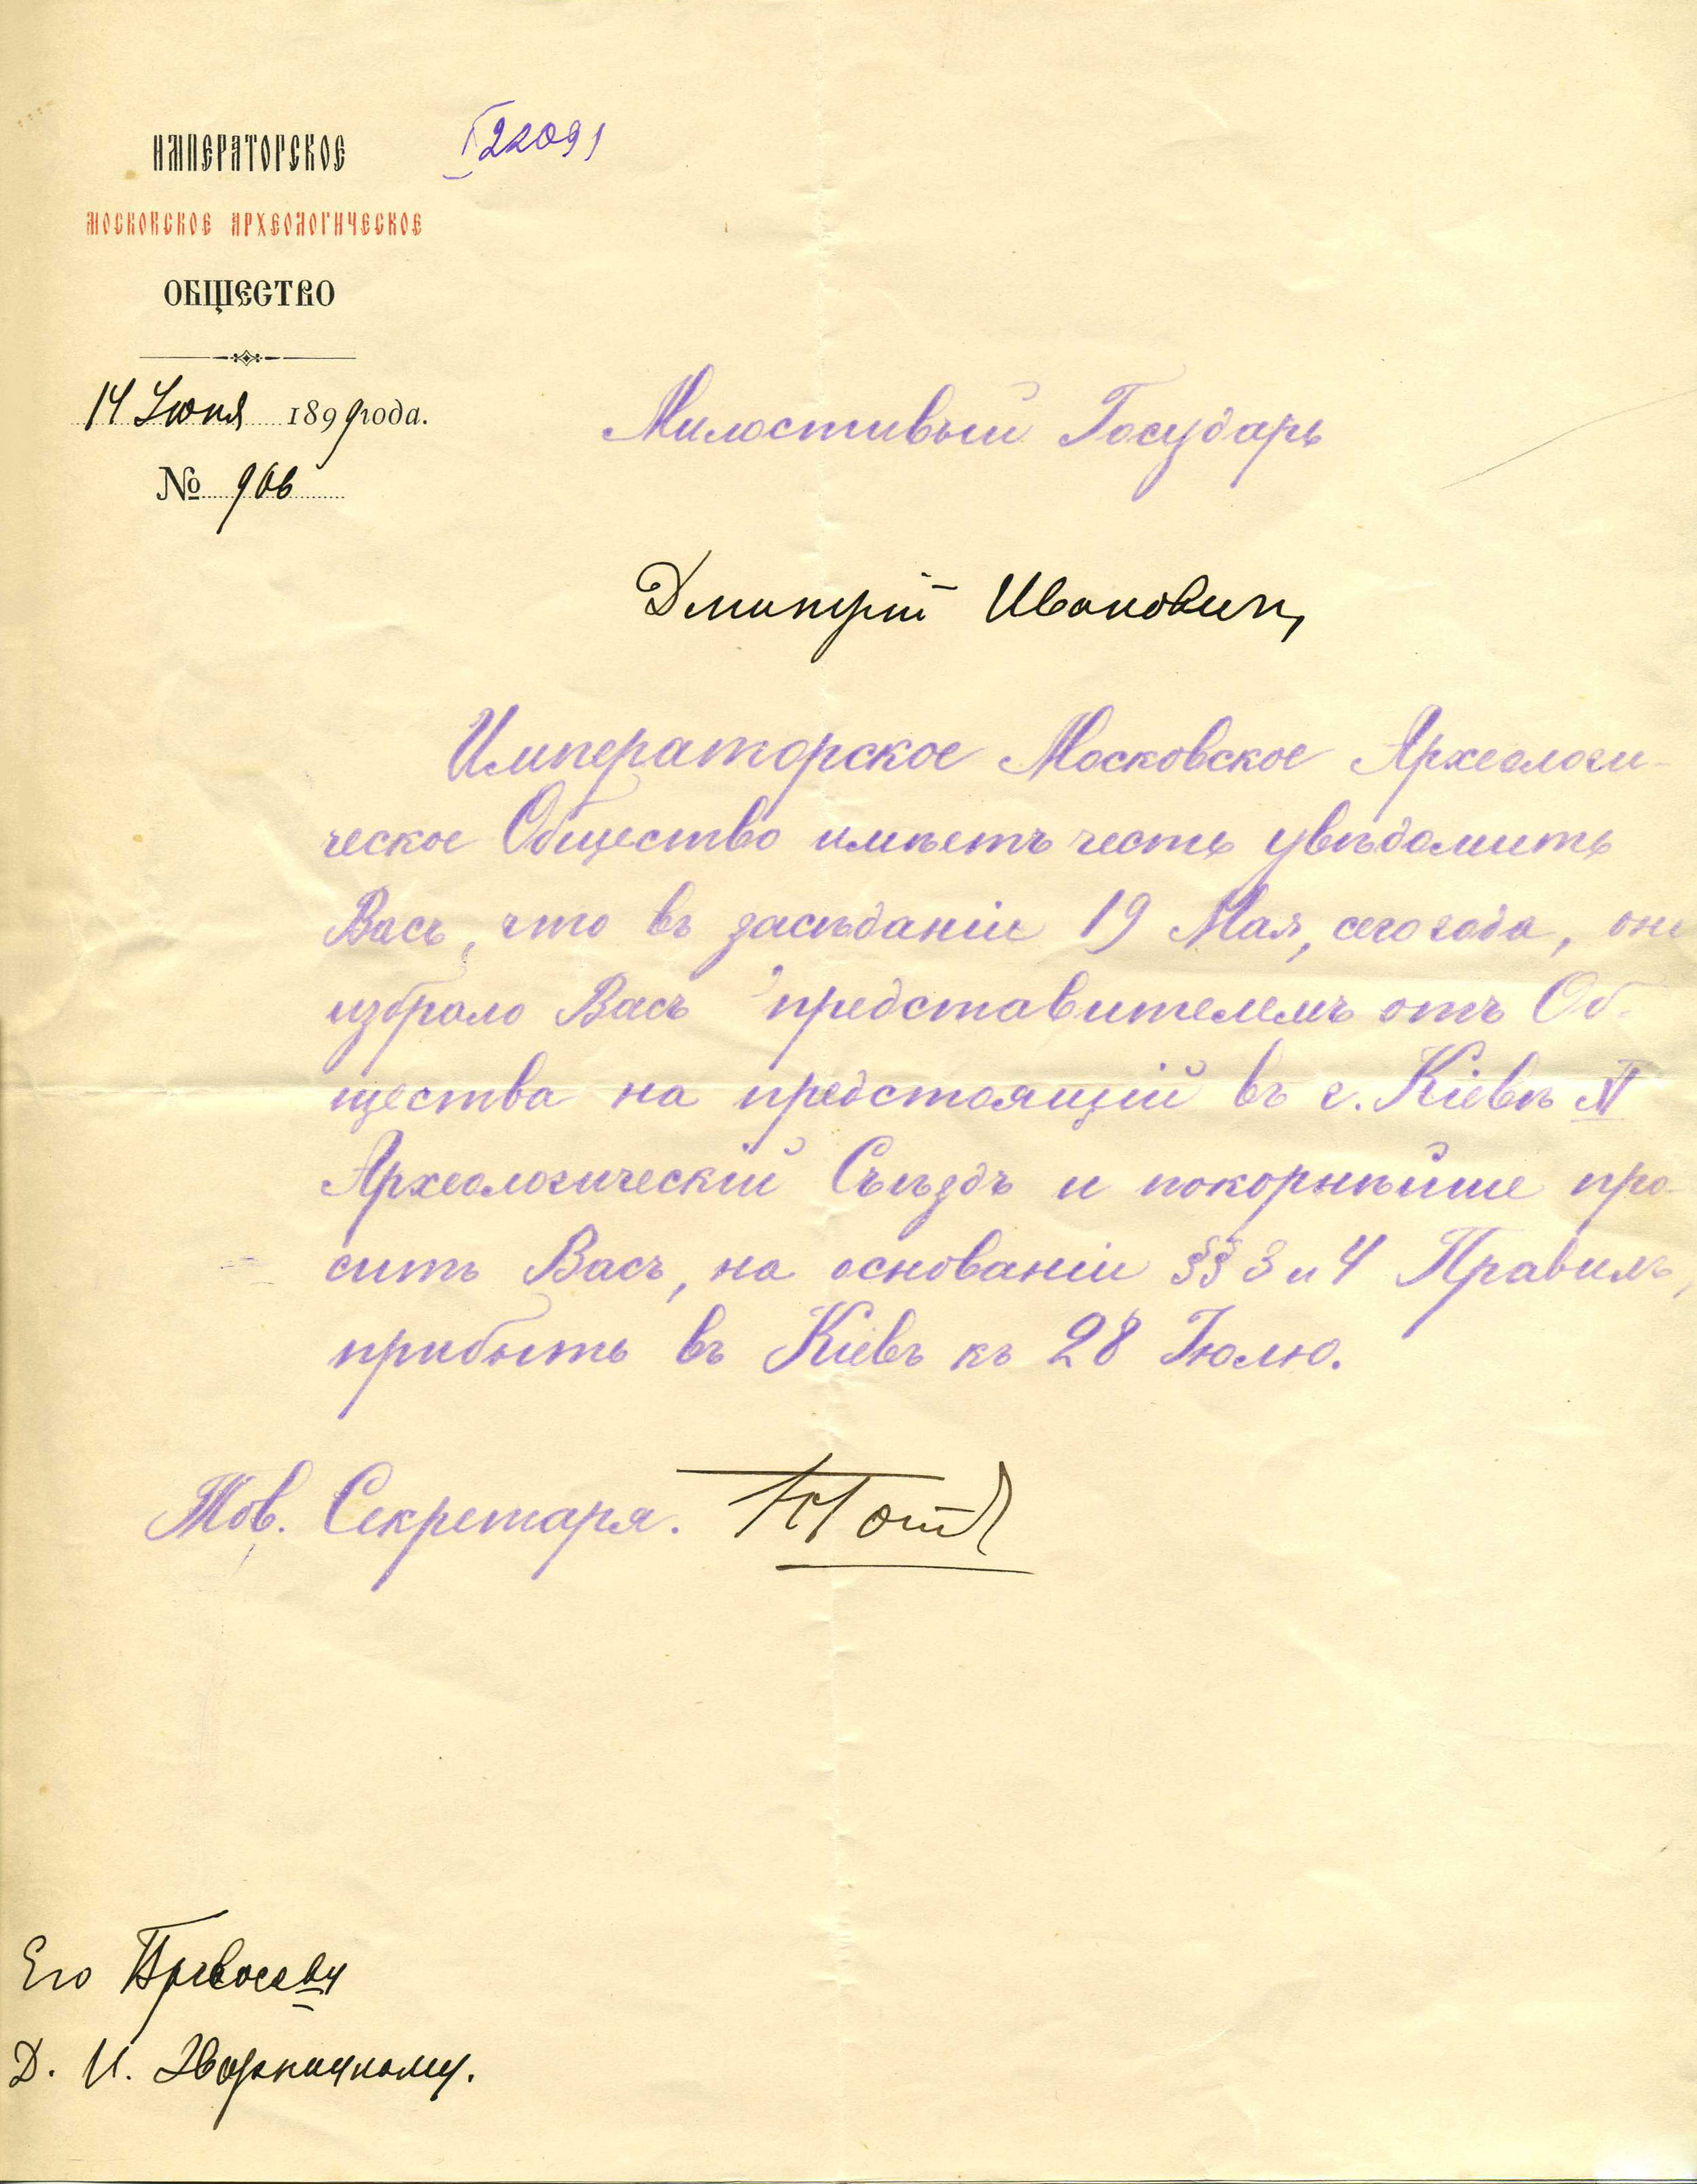 ИМПЕРАТОРСКОЕ
МОСКОВСКОЕ АРХЕОЛОГИЧЕСКОЕ
ОБЩЕСТВО
22091
14 Июня 1899 года.
№ 906
Милостивый Государь
Дмитрій Ивановичъ,
Императорское Московское Археологи-
ческое Общество имѣетъ честь увѣдомить
Васъ, что въ засѣданіи 19 Мая, сего года, оно
избрало Васъ представителемъ отъ Об-
щества на предстоящій въ г. Кіевѣ XI
Археологическій Съѣздъ и покорнѣйше про-
ситъ Васъ, на основаніи §§ 3 и 4 Правилъ,
прибыть въ Кіевъ къ 28 Іюлю.
Тов. Секретаря.
Его
Д. И. Эварницкому.